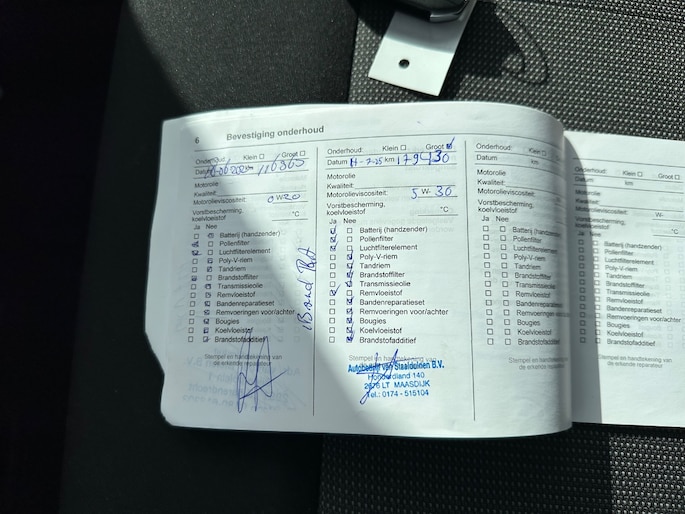 6 Bevestiging onderhoud
Onderhoud: Klein Groot
Datum km 116865
Motorolie
Kwaliteit:
Motorolieviscositeit: 0 W-20
Vorstbescherming, koelvloeistof °C
Ja Nee
Batterij (handzender)
Pollenfilter
Luchtfilterelement
Poly-V-riem
Tandriem
Brandstoffilter
Transmissieolie
Remvloeistof
Bandenreparatieset
Remvoeringen voor/achter
Bougies
Koelvloeistof
Brandstofadditief
Stempel en handtekening van
de erkende reparateur
Onderhoud: Klein Groot
Datum 11-7-25 km 179430
Motorolie
Kwaliteit:
Motorolieviscositeit: 5 W- 30
Vorstbescherming,
koelvloeistof °C
Ja Nee
Batterij (handzender)
Pollenfilter
Luchtfilterelement
Poly-V-riem
Tandriem
Brandstoffilter
Transmissieolie
Remvloeistof
Bandenreparatieset
Remvoeringen voor/achter
Bougies
Koelvloeistof
Brandstofadditief
Stempel en handtekening van
Autobedrijf van Staalduinen B.V.
2676 LT MAASDIJK
Tel.: 0174 - 515104
Onderhoud: Klein Groot
Datum km
Motorolie
Kwaliteit:
Motorolieviscositeit: W-
Vorstbescherming,
koelvloeistof °C
Ja Nee
Batterij (handzender)
Pollenfilter
Luchtfilterelement
Poly-V-riem
Tandriem
Brandstoffilter
Transmissieolie
Remvloeistof
Bandenreparatieset
Remvoeringen voor/achter
Bougies
Koelvloeistof
Brandstofadditief
Stempel en handtekening van
de erkende reparateur
Onderhoud: Klein
Datum km
Motorolie
Kwaliteit:
Motorolieviscositeit: W-
Vorstbescherming,
koelvloeistof °C
Ja Nee
Batterij (handzender)
Pollenfilter
Luchtfilterelement
Poly-V-riem
Tandriem
Brandstoffilter
Transmissieolie
Remvloeistof
Bandenreparatieset
Remvoeringen voor/achter
Bougies
Koelvloeistof
Brandstofadditief
Stempel en handtekening van
de erkende reparateur